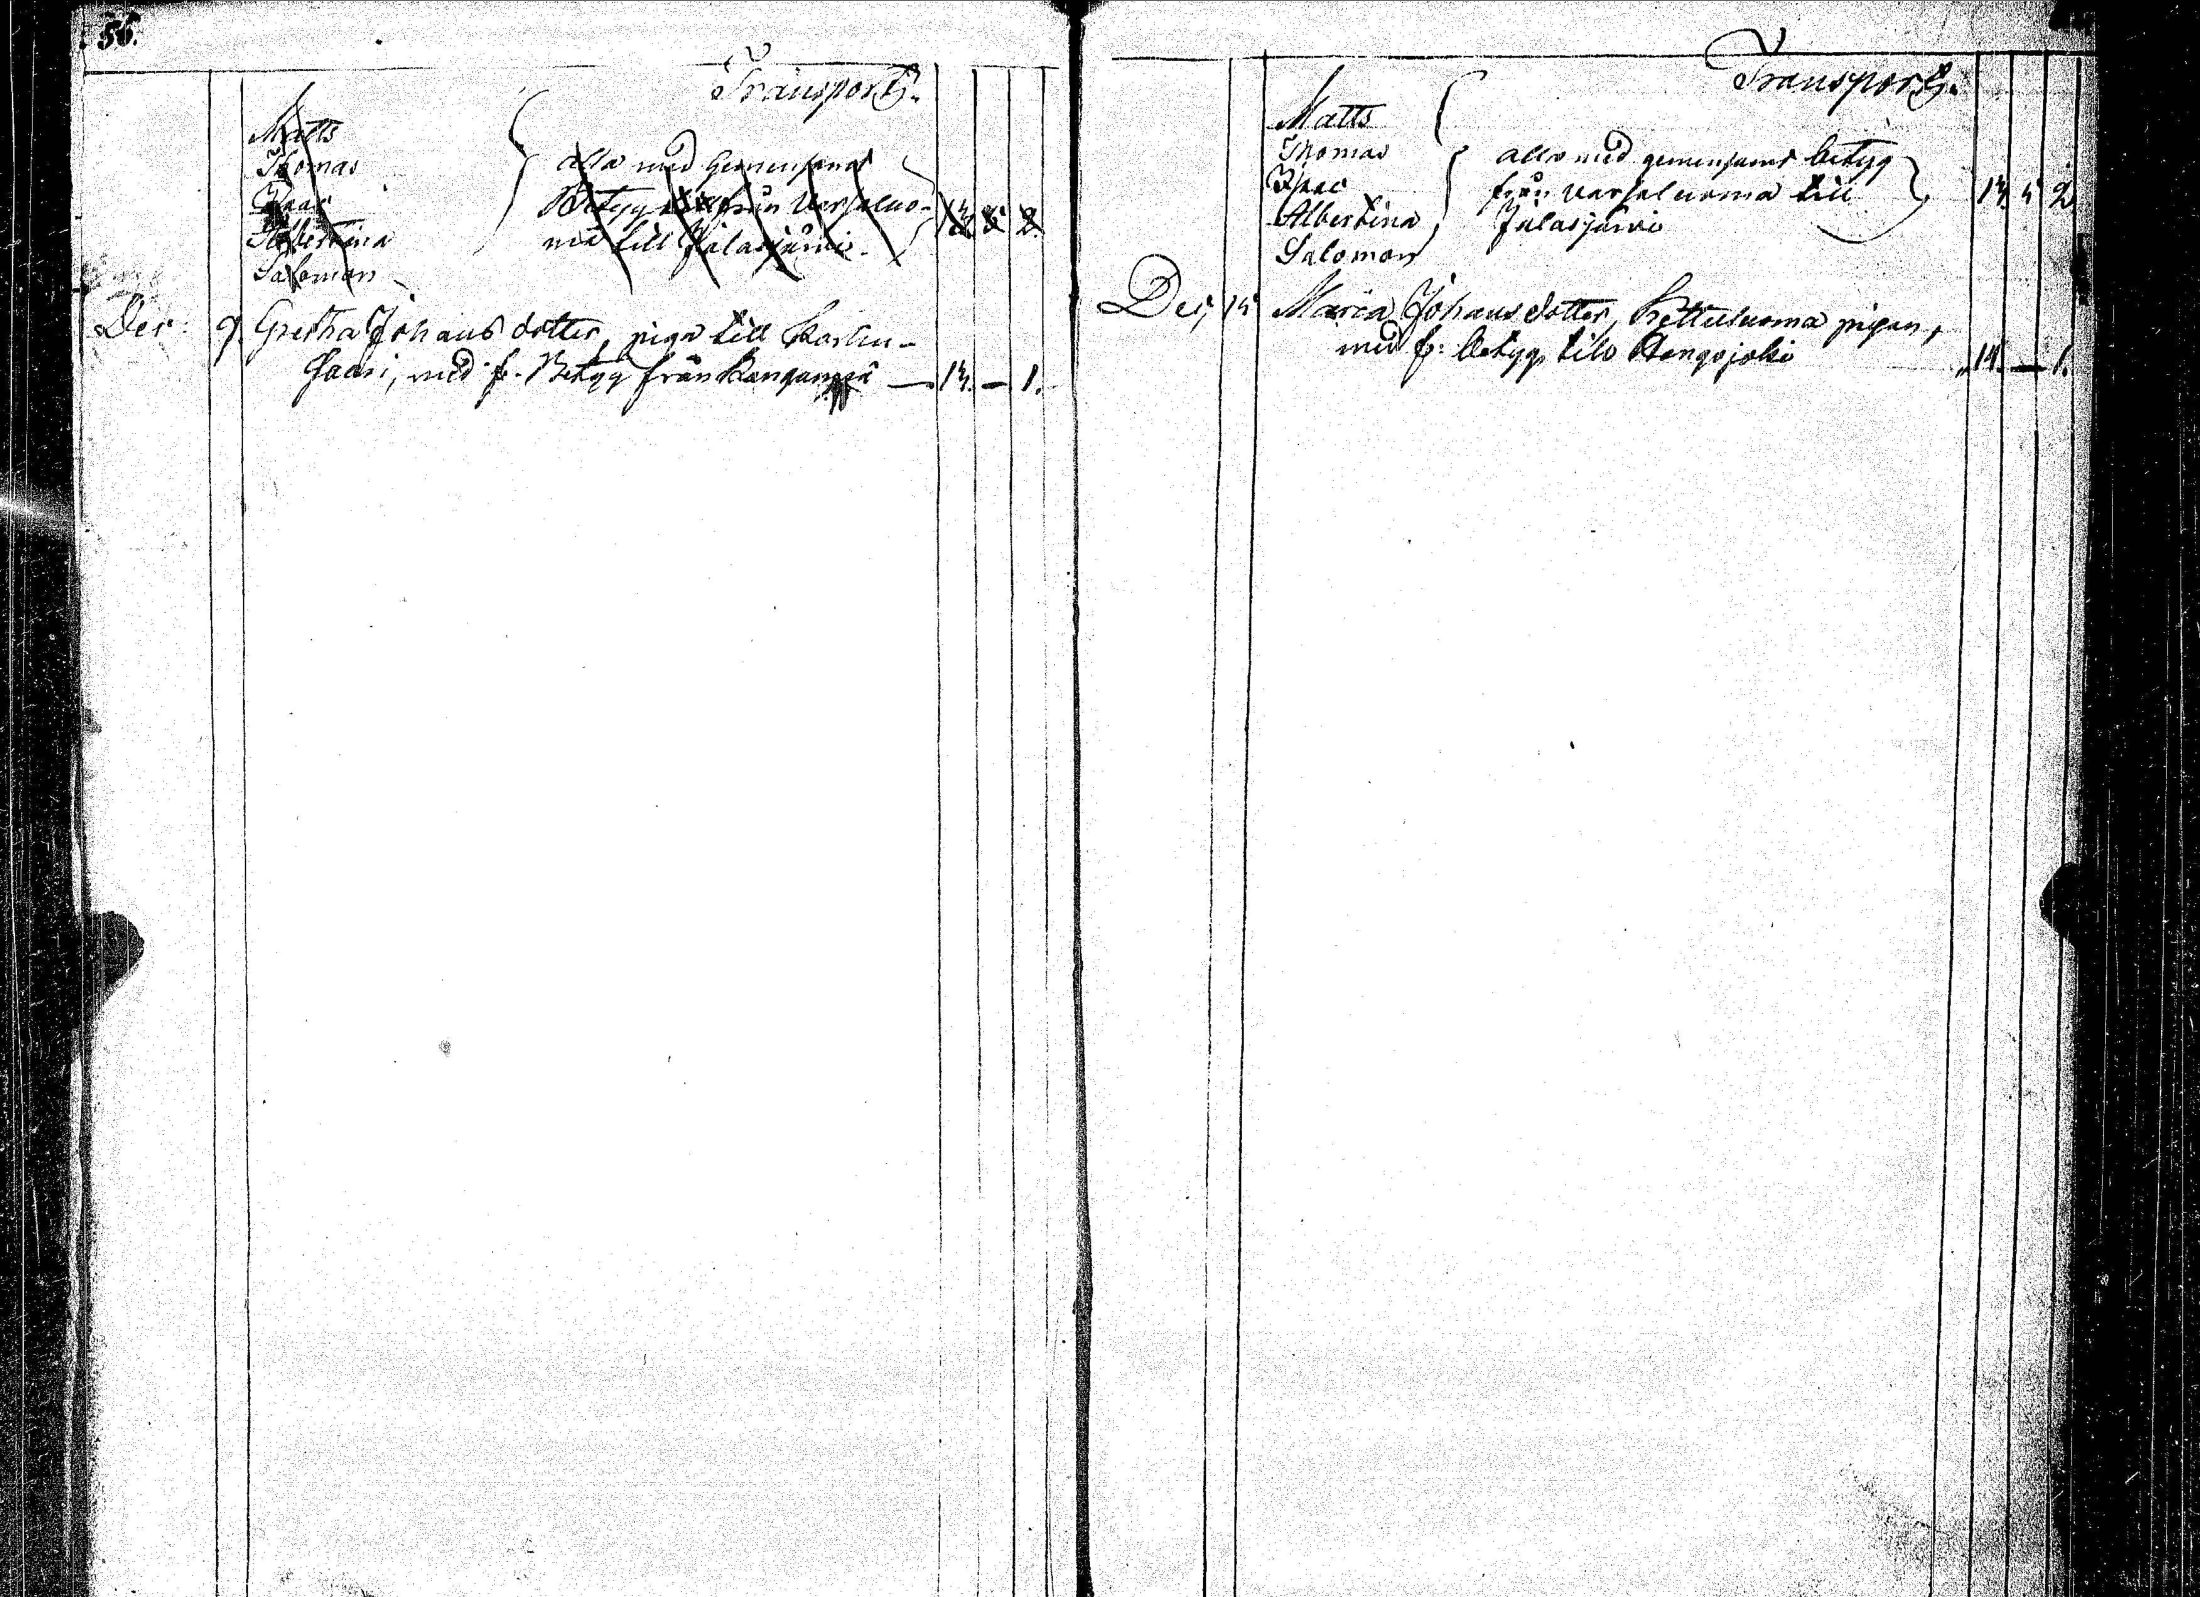 56.
Transport.
Matts
Thomas
Isaac
Albertina
Salomon
alla med Gemensamt
Betyg från Varsaluo-
ma till Jalasjärvi.
13. 5 2.
Dec: 9. Gretha Johansdotter, piga till Karhu-
saari, med fr. Betyg från Kangan — 13. — 1.
Transport.
Matts
Thomas
Isaac
Albertina
Salomon
alla med gemensamt betyg
från Varsaluoma till
Jalasjärvi
13. 5 2
Dec, 15 Maria Johansdotter, Kettuluoma pigan,
med fr: betyg till Hangojoki „ 14. — 1.